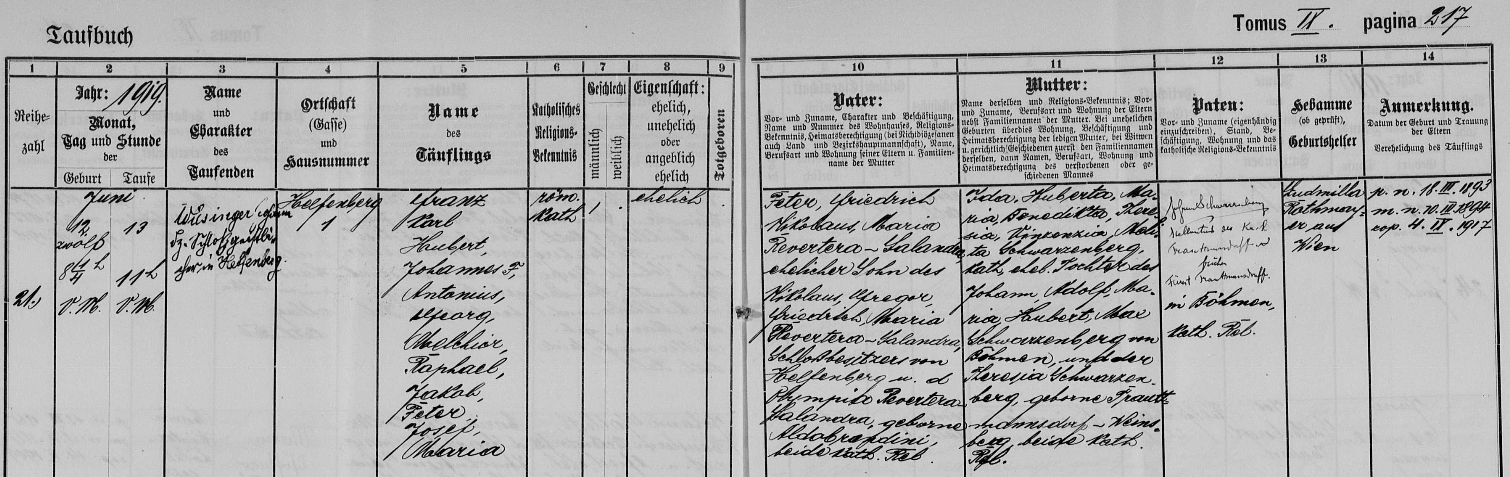 Taufbuch
Tomus IX. pagina 217
1
2
3
4
5
6
7
8
9
10
11
12
13
14
Reihe-
zahl
Jahr: 1919.
Monat,
Tag und Stunde
der
Geburt
Taufe
Name
und
Charakter
des
Taufenden
Ortschaft
(Gasse)
und
Hausnummer
Name
des
Täuflings
Katholisches
Religions-
Bekenntnis
Geschlecht
männlich
weiblich
Eigenschaft:
ehelich,
unehelich
oder
angeblich
ehelich
Totgeboren
Vater:
Vor- und Zuname, Charakter und Beschäftigung,
Name und Nummer des Wohnhauses, Religions-
Bekenntnis, Heimatsberechtigung (bei Richtdiözesanen
auch Land und Bezirkshauptmannschaft), Name,
Berufsart und Wohnung seiner Eltern u. Familien-
name der Mutter
Mutter:
Name derselben und Religions-Bekenntnis; Vor-
und Zuname, Berufsart und Wohnung der Eltern
nebst Familiennamen der Mutter. Bei unehelichen
Geburten überdies Wohnung, Beschäftigung und
Heimatsberechtigung der ledigen Mutter, bei Witwen
u. gerichtlich Geschiedenen zuerst den Familiennamen
derselben, dann Namen, Berufsart, Wohnung und
Heimatsberechtigung des verstorbenen oder ge-
schiedenen Mannes
Paten:
Vor- und Zuname (eigenhändig
einzuschreiben), Stand, Be-
schäftigung, Wohnung und das
katholische Religions-Bekenntnis
Hebamme
(ob geprüft),
Geburtshelfer
Anmerkung.
Datum der Geburt und Trauung
der Eltern
Verehelichung des Täuflings
21.)
Juni
12
zwölf
8 1/4 h
V. M.
13
11 h
V. M.
Wüsinger
Dz. Schloßgeistli-
cher in Helfenberg
Helfenberg
1
Franz
Karl
Hubert,
Johannes F.
Antonius,
Georg,
Melchior,
Raphael,
Jakob,
Peter,
Josef,
Maria
röm.
kath
1
.
ehelich
.
Peter, Friedrich
Nikolaus, Maria
Revertera-Salandra,
ehelicher Sohn des
Nikolaus, Gregor,
Friedrich, Maria
Revertera-Salandra,
Schloßbesitzers von
Helfenberg u. d
Olympia Revertera
Salandra, geborne
Aldobrandini,
beide kath. Rel.
Ida, Huberta, Ma-
ria, Benedikta, There-
sia, Vinzenzia, Meli-
ta Schwarzenberg,
kath, ehel. Tochter des
Johann, Adolf, Ma-
ria, Hubert, Max
Schwarzenberg von
Böhmen, und der
Theresia Schwarzen-
berg, geborne Trautt-
mannsdorf-Weins-
berg, beide kath.
Rel.
Johann Schwarzenberg
in Böhmen,
kath. Rel.
Ludmilla
Rothmay-
er aus
Wien
p. n. 18. III. 1893
m. n. 10. III. 1894
cop. 4. IX. 1917